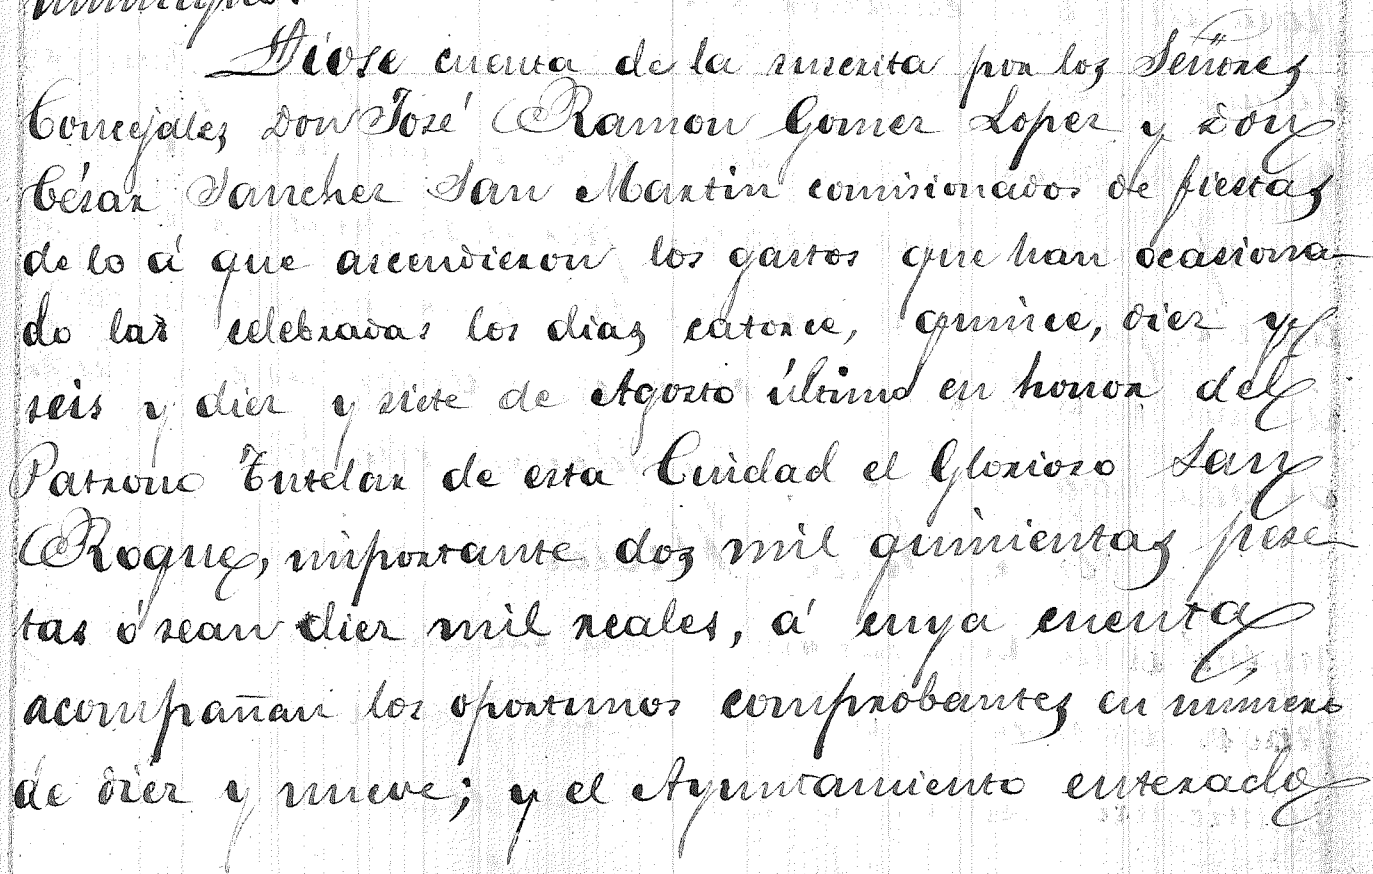 Dióse cuenta de la suscrita por los Señores
Concejales Don José Ramon Gomez Lopez y Don
César Sanchez San Martin comisionados de fiestas
de lo á que ascendieron los gastos que han ocasiona-
do las celebradas los dias catorce, quince, diez y
seis y diez y siete de Agosto último en honor del
Patrono Tutelar de esta Ciudad el Glorioso San
Roque, importante dos mil quinientas pese-
tas ó sean diez mil reales, á cuya cuenta
acompañan los oportunos comprobantes en número
de diez y nueve; y el Ayuntamiento enterado